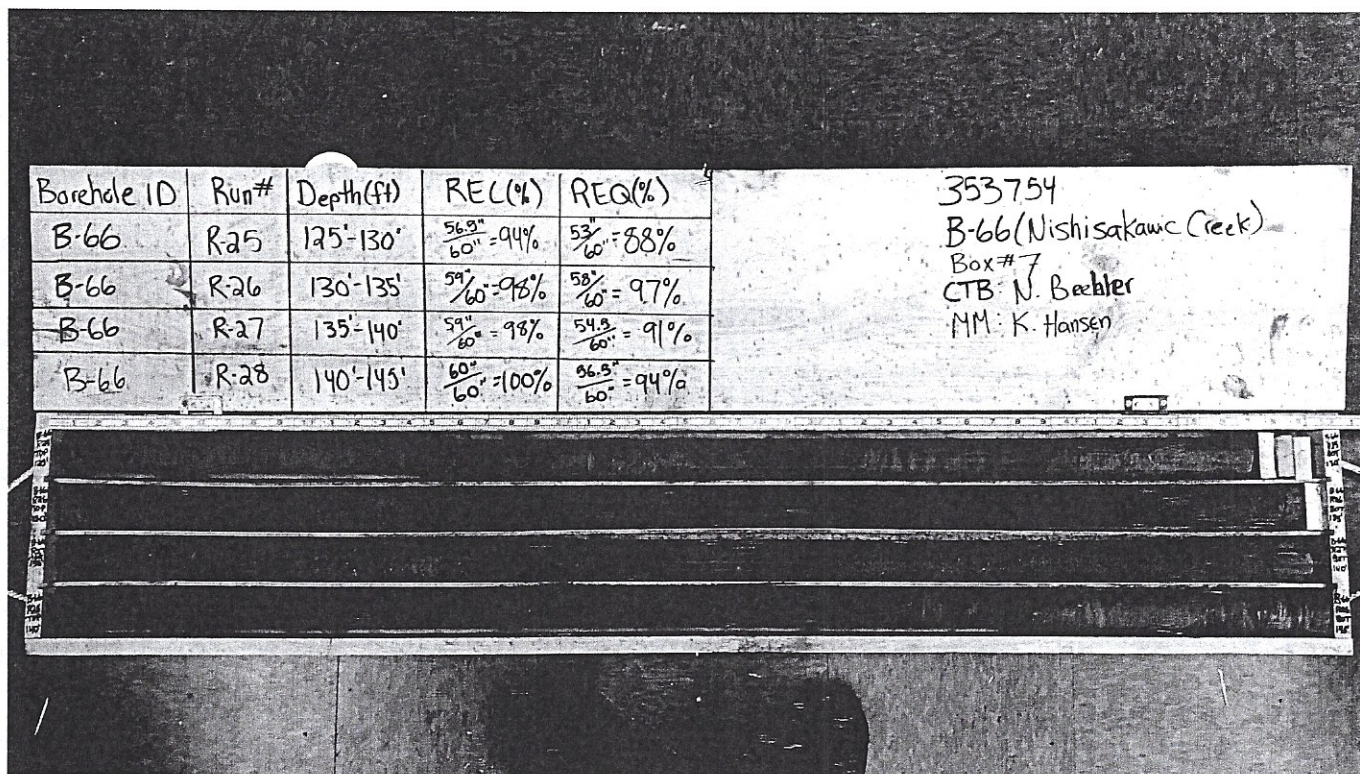 Borehole ID Run# Depth(ft) REC(%) REQ(%)
B-66 R-25 125'-130' 56.5"/60"=94% 53"/60"=88%
B-66 R-26 130'-135' 59"/60"=98% 58"/60"=97%
B-66 R-27 135'-140' 59"/60"=98% 54.5"/60"=91%
B-66 R-28 140'-145' 60"/60"=100% 56.5"/60"=94%
353754
B-66 (Nishisakawic Creek)
Box #7
CTB: N. Beehler
MM: K. Hansen